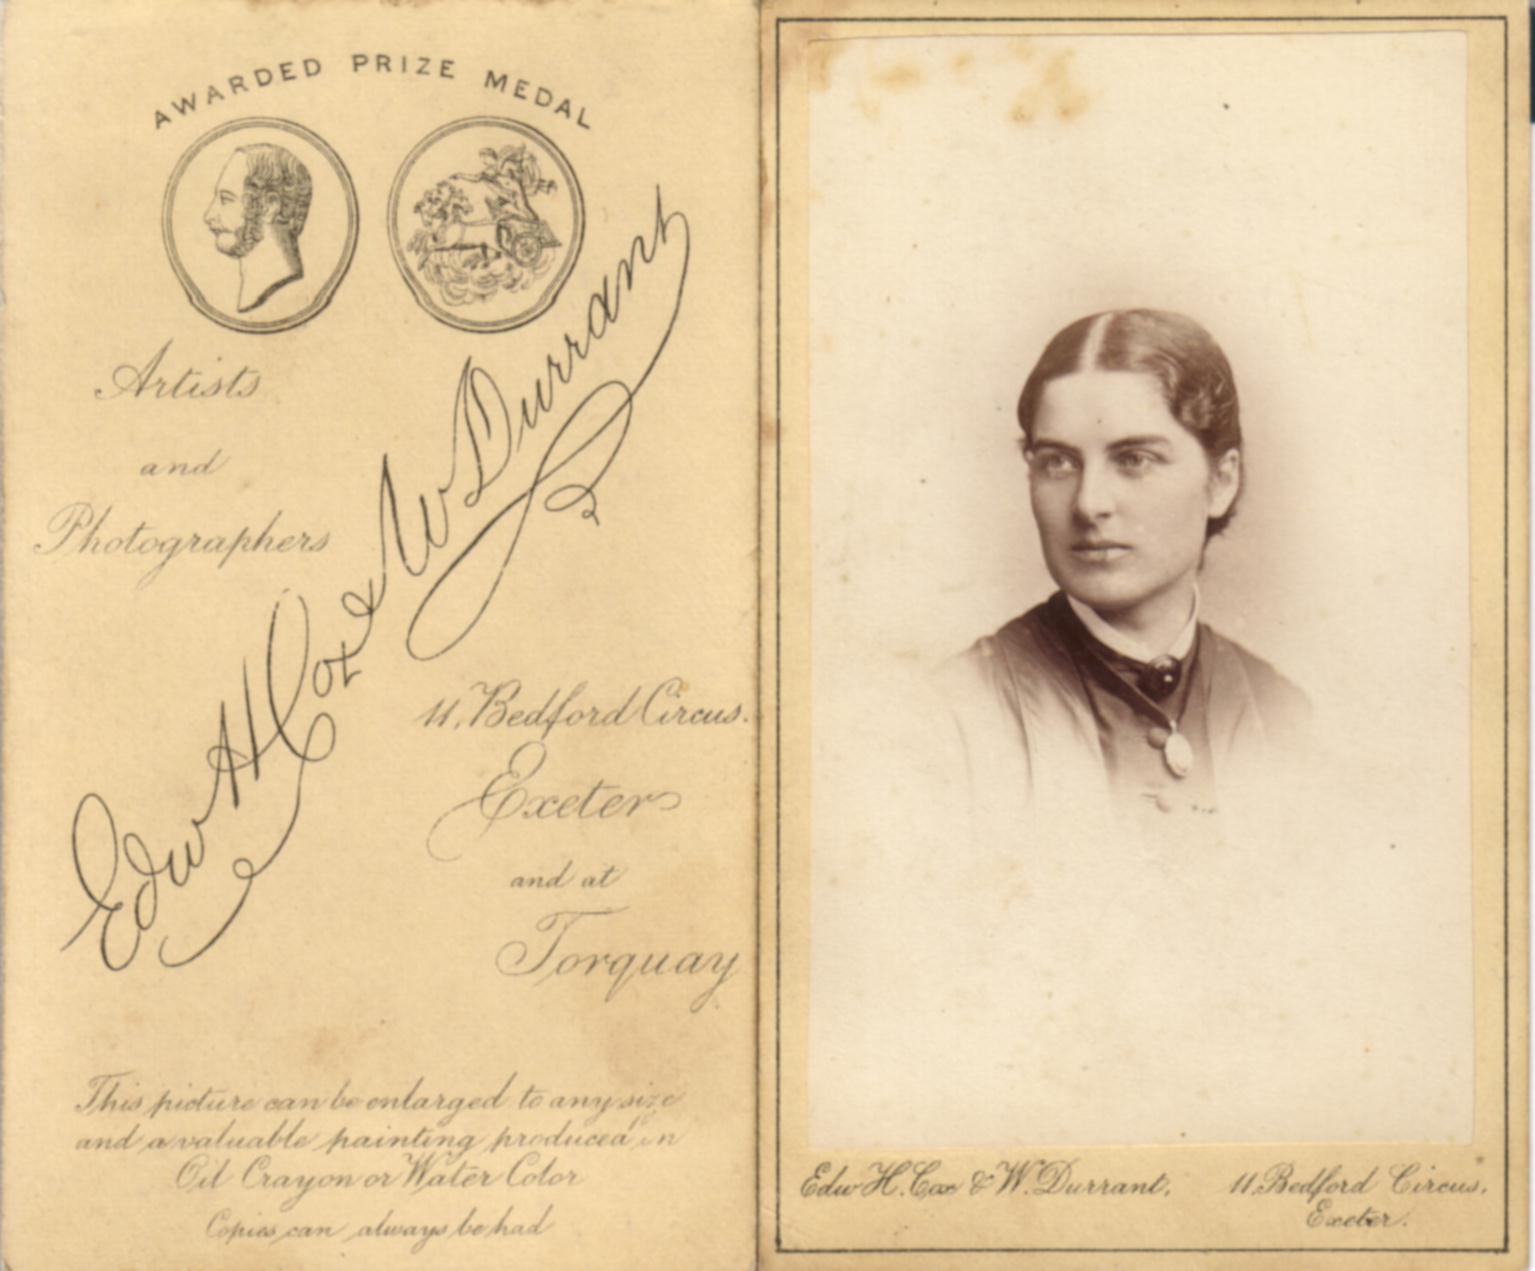 AWARDED PRIZE MEDAL
Artists
and
Photographers
Edw H Cox & W Durrant
11, Bedford Circus.
Exeter
and at
Torquay
This picture can be enlarged to any size
and a valuable painting produced in
Oil Crayon or Water Color
Copies can always be had
Edw H. Cox & W. Durrant, 11. Bedford Circus,
Exeter.